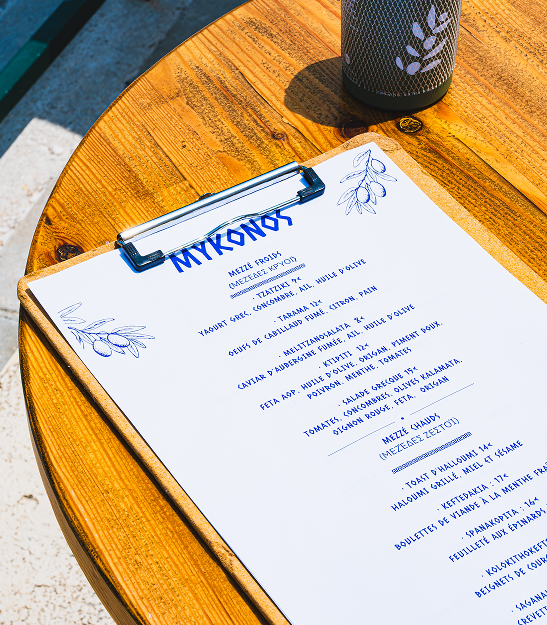 MYKONOS
MEZZÉ FROIDS
(ΜΕΖΕΔΕΣ ΚΡΥΟΙ)
· TZATZIKI 9€
YAOURT GREC, CONCOMBRE, AIL, HUILE D'OLIVE
· TARAMA 12€
OEUFS DE CABILLAUD FUMÉ, CITRON, PAIN
· MELITZANOSALATA 8€
CAVIAR D'AUBERGINE FUMÉE, AIL, HUILE D'OLIVE
· KTIPITI 12€
FETA AOP, HUILE D'OLIVE, ORIGAN, PIMENT DOUX,
POIVRON, MENTHE, TOMATES
· SALADE GRECQUE 15€
TOMATES, CONCOMBRES, OLIVES KALAMATA,
OIGNON ROUGE, FETA, ORIGAN
MEZZÉ CHAUDS
(ΜΕΖΕΔΕΣ ΖΕΣΤΟΙ)
· TOAST D'HALLOUMI 14€
HALOUMI GRILLÉ, MIEL ET SÉSAME
· KEFTEDAKIA : 17€
BOULETTES DE VIANDE À LA MENTHE
· SPANAKOPITA : 16€
FEUILLETÉ AUX ÉPINARDS
BEIGNETS DE